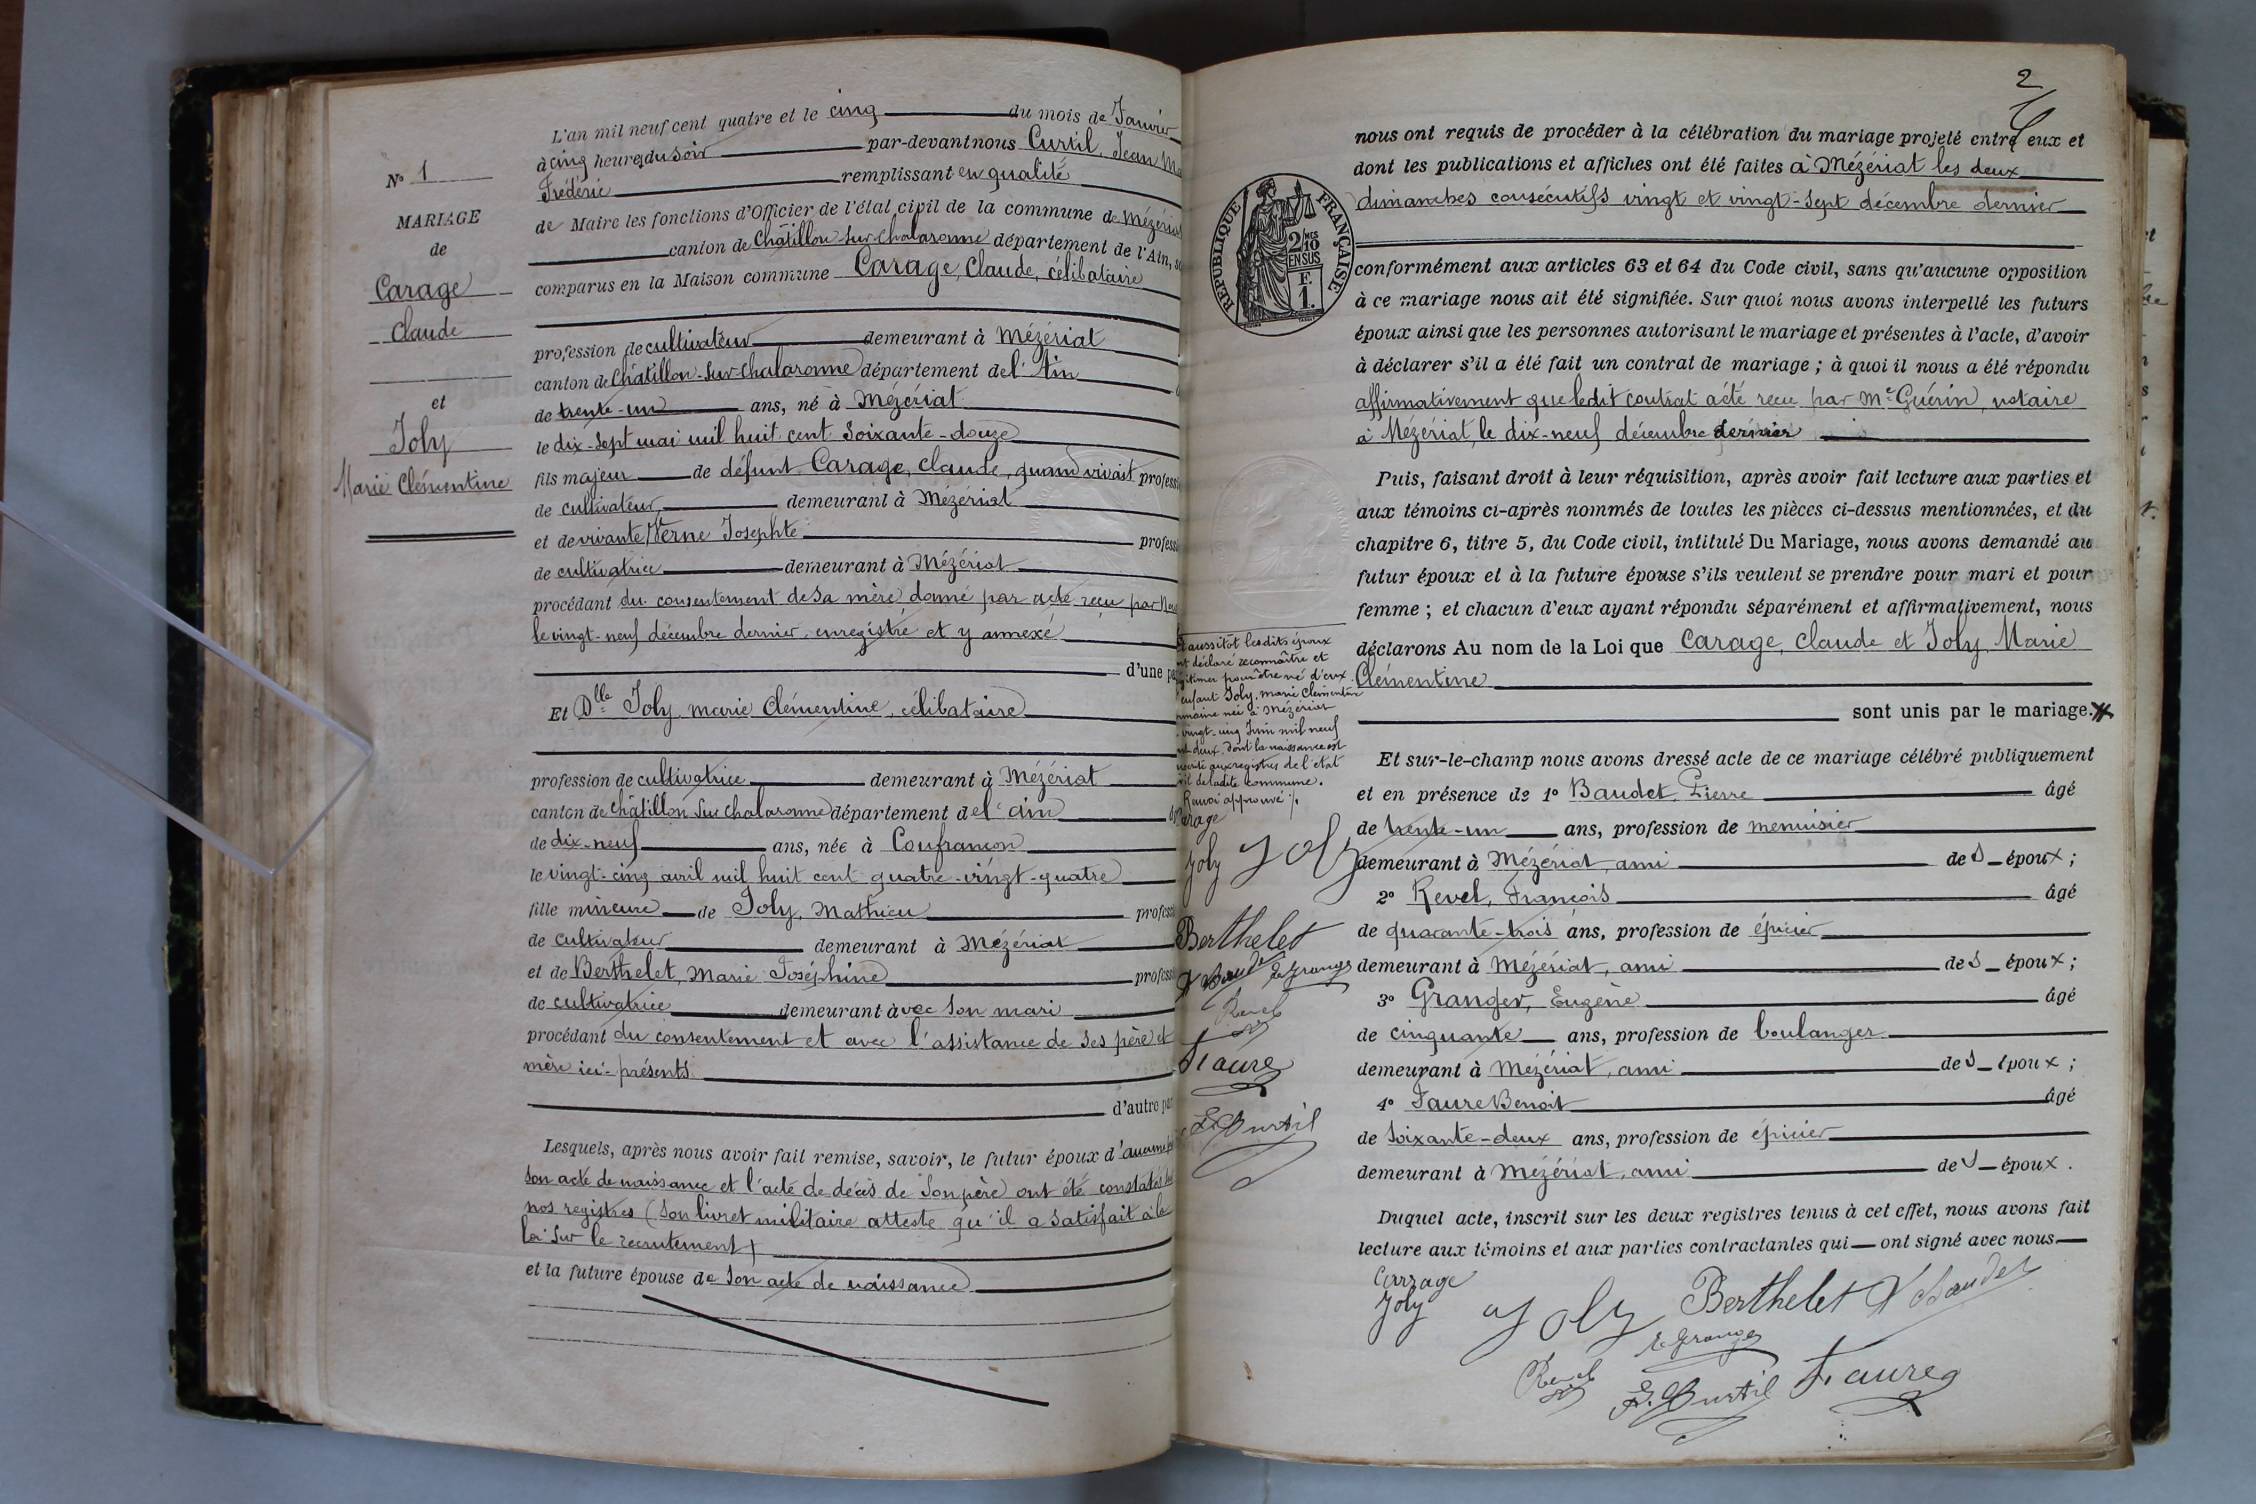 N° 1
MARIAGE
de
Carage
Claude
et
Joly
Marie Clémentine
L'an mil neuf cent quatre et le cinq du mois de Janvier
à cinq heures du soir par-devant nous Curtil, Jean
Frédéric remplissant en qualité
de Maire les fonctions d'Officier de l'état civil de la commune de Mézériat
canton de Châtillon sur Chalaronne département de l'Ain,
comparus en la Maison commune Carage, Claude, célibataire
profession de cultivateur demeurant à Mézériat
canton de Châtillon-sur-Chalaronne département de l'Ain
de trente-un ans, né à Mézériat
le dix-sept mai mil huit cent soixante-douze
fils majeur de défunt Carage, Claude, quand vivait profess
de cultivateur demeurant à Mézériat
et de vivante Verne Josephte profess
de cultivatrice demeurant à Mézériat
procédant du consentement de sa mère donné par acte reçu par
le vingt-neuf décembre dernier, enregistré et y annexé
d'une pa
Et Dlle Joly, Marie Clémentine, célibataire
profession de cultivatrice demeurant à Mézériat
canton de Châtillon sur Chalaronne département de l'Ain
de dix-neuf ans, née à Confrançon
le vingt-cinq avril mil huit cent quatre-vingt-quatre
fille mineure de Joly, Mathieu profess
de cultivateur demeurant à Mézériat
et de Berthelet, Marie Joséphine profess
de cultivatrice demeurant à vec son mari
procédant du consentement et avec l'assistance de ses père et
mère ici-présents
d'autre par
Lesquels, après nous avoir fait remise, savoir, le futur époux d'aucune
son acte de naissance et l'acte de décès de son père ont été constatés
nos registres (son livret militaire atteste qu'il a satisfait à la
loi sur le recrutement)
et la future épouse de son acte de naissance
2
nous ont requis de procéder à la célébration du mariage projeté entre eux et
dont les publications et affiches ont été faites à Mézériat les deux
dimanches consécutifs vingt et vingt-sept décembre dernier
RÉPUBLIQUE FRANÇAISE
2/10 MES
EN SUS
F.
1.
conformément aux articles 63 et 64 du Code civil, sans qu'aucune opposition
à ce mariage nous ait été signifiée. Sur quoi nous avons interpellé les futurs
époux ainsi que les personnes autorisant le mariage et présentes à l'acte, d'avoir
à déclarer s'il a été fait un contrat de mariage ; à quoi il nous a été répondu
affirmativement que ledit contrat a été reçu par Me Guérin, notaire
à Mézériat, le dix-neuf décembre dernier
Puis, faisant droit à leur réquisition, après avoir fait lecture aux parties et
aux témoins ci-après nommés de toutes les pièces ci-dessus mentionnées, et du
chapitre 6, titre 5, du Code civil, intitulé Du Mariage, nous avons demandé au
futur époux et à la future épouse s'ils veulent se prendre pour mari et pour
femme ; et chacun d'eux ayant répondu séparément et affirmativement, nous
déclarons Au nom de la Loi que Carage, Claude et Joly, Marie
Clémentine
sont unis par le mariage.
Et sur-le-champ nous avons dressé acte de ce mariage célébré publiquement
et en présence de 1° Baudet, Pierre âgé
de trente-un ans, profession de menuisier
demeurant à Mézériat, ami de s époux ;
2° Revel, François âgé
de quarante-trois ans, profession de épicier
demeurant à Mézériat, ami de s époux ;
3° Granger, Eugène âgé
de cinquante ans, profession de boulanger
demeurant à Mézériat, ami de s époux ;
4° Faure Benoit âgé
de soixante-deux ans, profession de épicier
demeurant à Mézériat, ami de s époux.
Duquel acte, inscrit sur les deux registres tenus à cet effet, nous avons fait
lecture aux témoins et aux parties contractantes qui ont signé avec nous
Carrage
Joly Joly Berthelet Baudet
E Granger
Revel F. Curtil Faure
aussitôt lesdits époux
nt déclaré reconnaître et
gitimer pour être né d'eux
enfant Joly, Marie Clémentine
rmaine née à Mézériat
vingt-cinq Juin mil neuf
nt deux, dont la naissance est
scrite aux registres de l'état
vil de ladite commune.
Renvoi approuvé
arage
Joly Joly
Berthelet
Baudet E Granger
Revel
Faure
F. Curtil